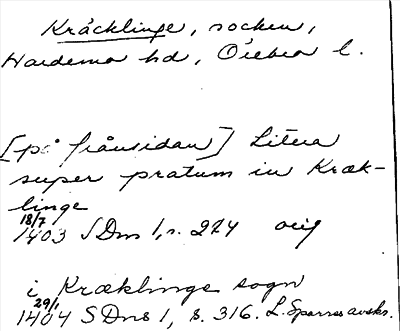 Kräcklinge, socken,
Hardemo hd, Örebro l.
[på frånsidan] Litera
super pratum in Kræk-
linge
18/7
1403 SDns 1, s. 224 orig
i Kræklinge sogn
29/1
1404 SDns 1, s. 316. L. Sparres avskr.